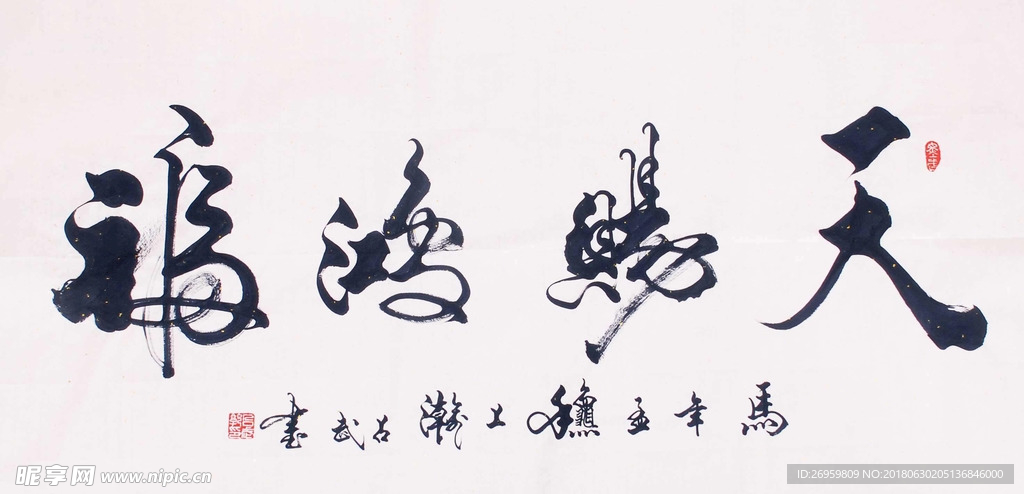 天賜鴻福
馬年孟龝上瀚古武書
昵享网 www.nipic.cn
ID:26959809 NO:20180630205136846000